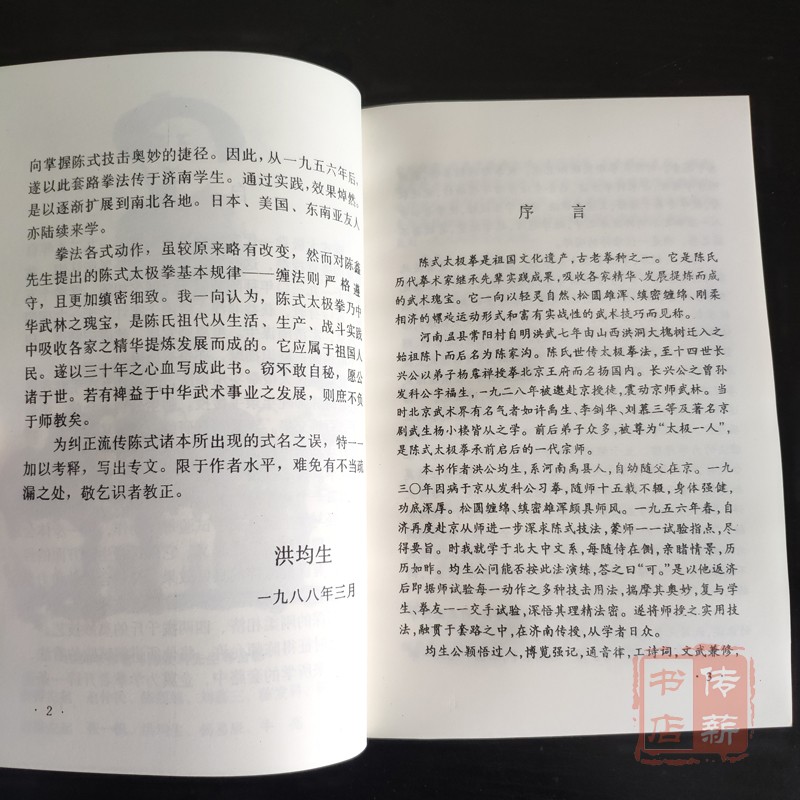 向掌握陈式技击奥妙的捷径。因此，从一九五六年后，
遂以此套路拳法传于济南学生。通过实践，效果焯然。
是以逐渐扩展到南北各地。日本、美国、东南亚友人
亦陆续来学。
拳法各式动作，虽较原来略有改变，然而对陈鑫
先生提出的陈式太极拳基本规律——缠法则严格遵
守，且更加缜密细致。我一向认为，陈式太极拳乃中
华武林之瑰宝，是陈氏祖代从生活、生产、战斗实践
中吸收各家之精华提炼发展而成的。它应属于祖国人
民。遂以三十年之心血写成此书。窃不敢自秘，愿公
诸于世。若有裨益于中华武术事业之发展，则庶不负
于师教矣。
为纠正流传陈式诸本所出现的式名之误，特一一
加以考释，写出专文。限于作者水平，难免有不当疏
漏之处，敬乞识者教正。
洪均生
一九八八年三月
·2·
序言
陈式太极拳是祖国文化遗产，古老拳种之一。它是陈氏
历代拳术家继承先辈实践成果，吸收各家精华、发展提炼而成
的武术瑰宝。它一向以轻灵自然、松圆雄浑、缜密缠绵、刚柔
相济的螺旋运动形式和富有实战性的武术技巧而见称。
河南孟县常阳村自明洪武七年由山西洪洞大槐树迁入之
始祖陈卜而后名为陈家沟。陈氏世传太极拳法，至十四世长
兴公以弟子杨露禅授拳北京王府而名扬国内。长兴公之曾孙
发科公字福生，一九二八年被邀赴京授徒，震动京师武林。当
时北京武术界有名气者如许禹生、李剑华、刘慕三等及著名京
剧武生杨小楼皆从之学。前后弟子众多，被尊为“太极一人”，
是陈式太极拳承前启后的一代宗师。
本书作者洪公均生，系河南禹县人，自幼随父在京。一九
三〇年因病于京从发科公习拳，随师十五载不辍，身体强健，
功底深厚。松圆缠绵、缜密雄浑颇具师风。一九五六年春，自
济再度赴京从师进一步深求陈式技法，蒙师一一试验指点，尽
得要旨。时我就学于北大中文系，每随侍在侧，亲睹情景，历
历如昨。均生公问能否按此法演练，答之曰“可。”是以他返济
后即据师试验每一动作之多种技击用法，揣摩其奥妙，复与学
生、拳友一一交手试验，深悟其理精法密。遂将师授之实用技
法，融贯于套路之中，在济南传授，从学者日众。
均生公颖悟过人，博览强记，通音律，工诗词，文武兼修，
·3·
传薪
书店